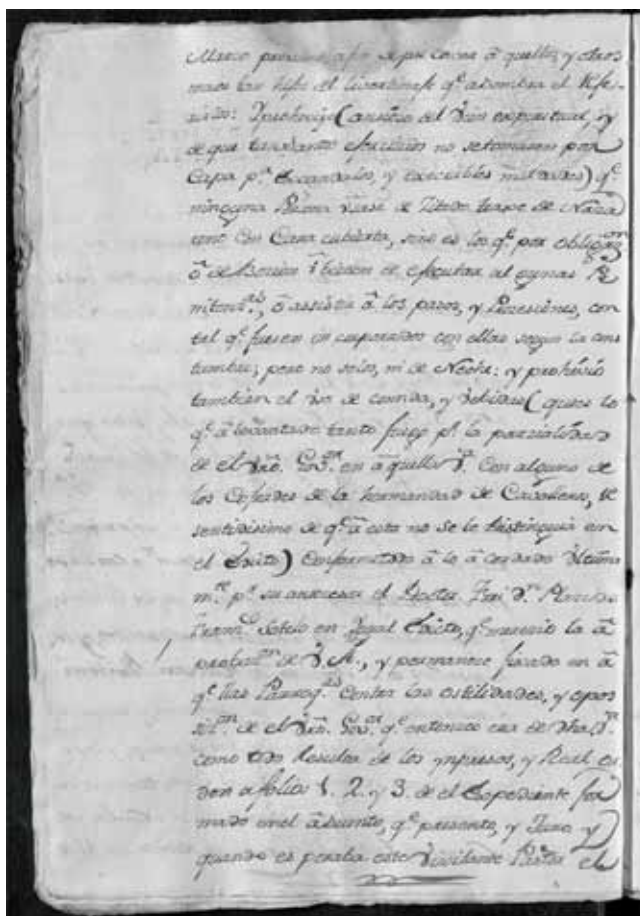 Marzo proximo a fin de precaver aquellos, y otros
mas
Prohivio (ansioso del vien espiritual, y
de que tan santos exercicios no se tomasen por
Capa pª escandalos, y execrables maldades) qᵉ
ninguna Perssona usase de Trage de Naza
reno con Cara cubierta, sino es los qᵉ por obligazᵒⁿ
ó debocion hubiesen de executar algunas Pe
nitencˢ, ó assistir â los pasos, y Procesiones, con
tal qᵉ fuesen incorporados con ellas segun la cos
tumbre; pero no solos, ni de Noche: y prohivio
tambien el uso de comida, y vebidas (que es lo
qᵉ â levantado tanto fuego pʳ la parzialidad
de el Govᵒʳ en aquella Vª con algunos de
los Cofrades de la hermandad de Cavalleros, re
sentidisimo de qᵉ â esta no se le distinguia en
el Edicto) Conformandose â lo acordado ultima
mᵗᵉ pʳ su antecesor el Doctor Frei Dⁿ
Franᶜᵒ Sotelo en Igual Edicto, qᵉ merecio la a
probazᵒⁿ de V. A., y permanece fixado en a
qᵉllas Parroqˢ contra las ostilidades, y opos
sizᵒⁿ de el Govᵒʳ qᵉ entonces era de dha Vª
como todo Resulta de los ympresos, y Real or
den a folios 1. 2. y 3. de el Expediente for
mado en el asunto, qᵉ presento, y Juro y
quando esperaba este vixilante Pastor el